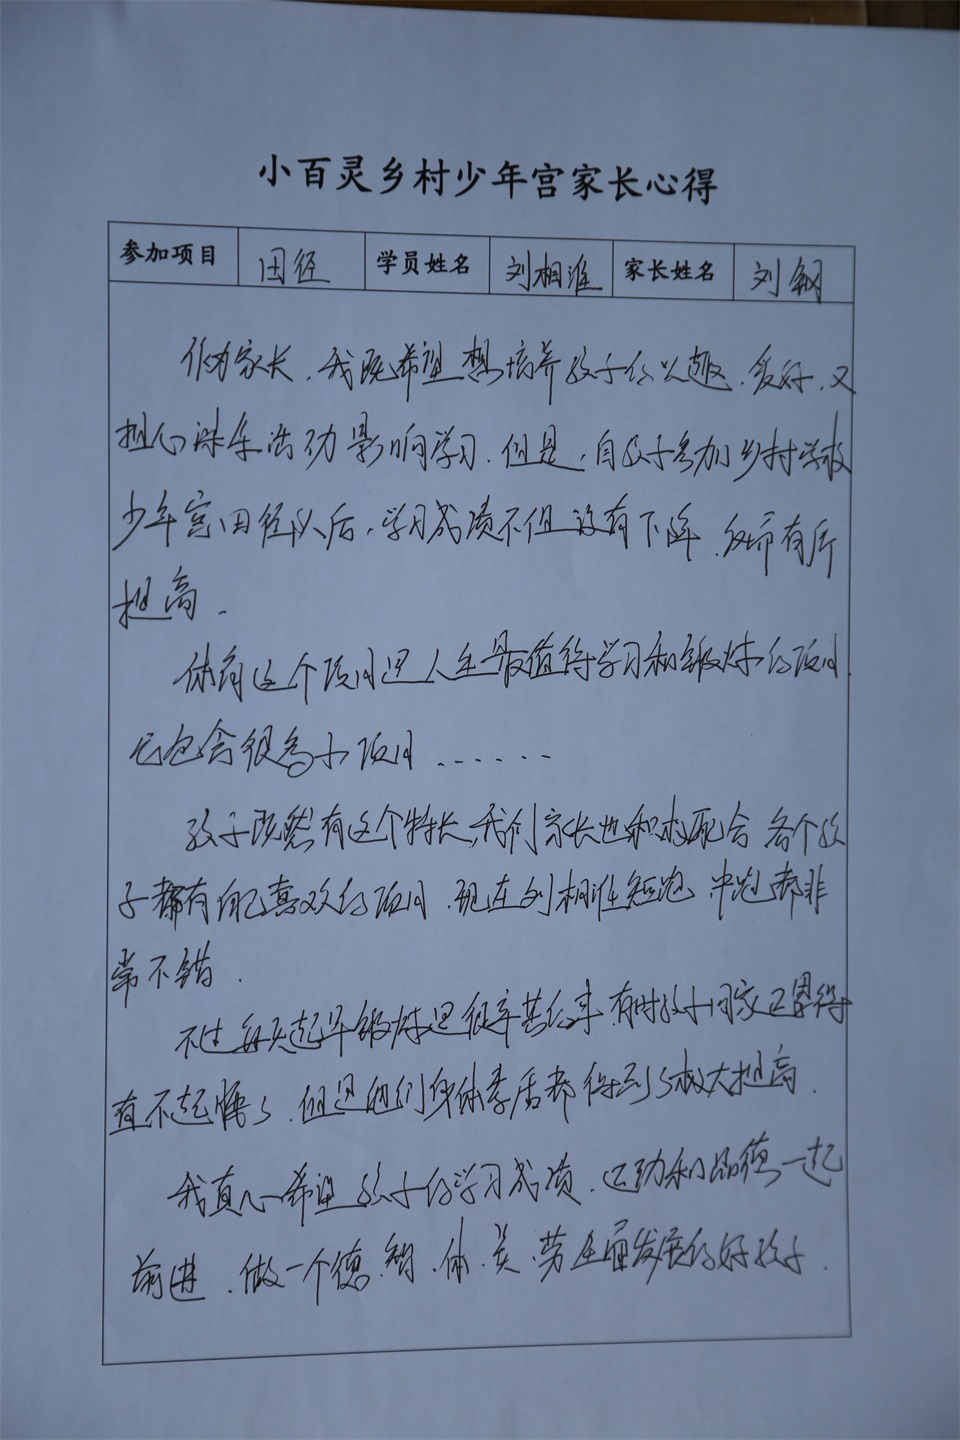 小百灵乡村少年宫家长心得
参加项目 田径 学员姓名 刘相淮 家长姓名 刘钢
作为家长,我既希望想培养孩子的兴趣、爱好,又
担心课余活动影响学习.但是,自孩子参加乡村学校
少年宫田径队后,学习成绩不但没有下降,反而有所
提高.
体育这个项目是人生最值得学习和锻炼的项目
它包含很多小项目......
孩子既然有这个特长,我们家长也积极配合 各个孩
子都有自己喜欢的项目.现在刘相淮短跑、中跑都非
常不错.
不过每天起早锻炼是很辛苦的事,有时孩子回家已累得
直不起腰了.但是他们身体素质都得到了极大提高.
我真心希望孩子的学习成绩、运动和品德一起
前进.做一个德、智、体、美、劳全面发展的好孩子.